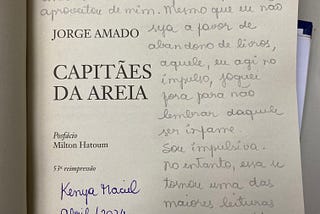 aproveitou de mim. Mesmo que eu não
seja a favor de
JORGE AMADO
abandono de livros,
aquele, eu agi no
CAPITÃES
impulso, joguei
DA AREIA
fora para não
lembrar daquele
ser infame.
Prefácio
Milton Hatoum
Sou impulsiva.
no entanto, essa se
53ª reimpressão
tornou uma das
Kenya Maciel
maiores leituras
Abril/2024